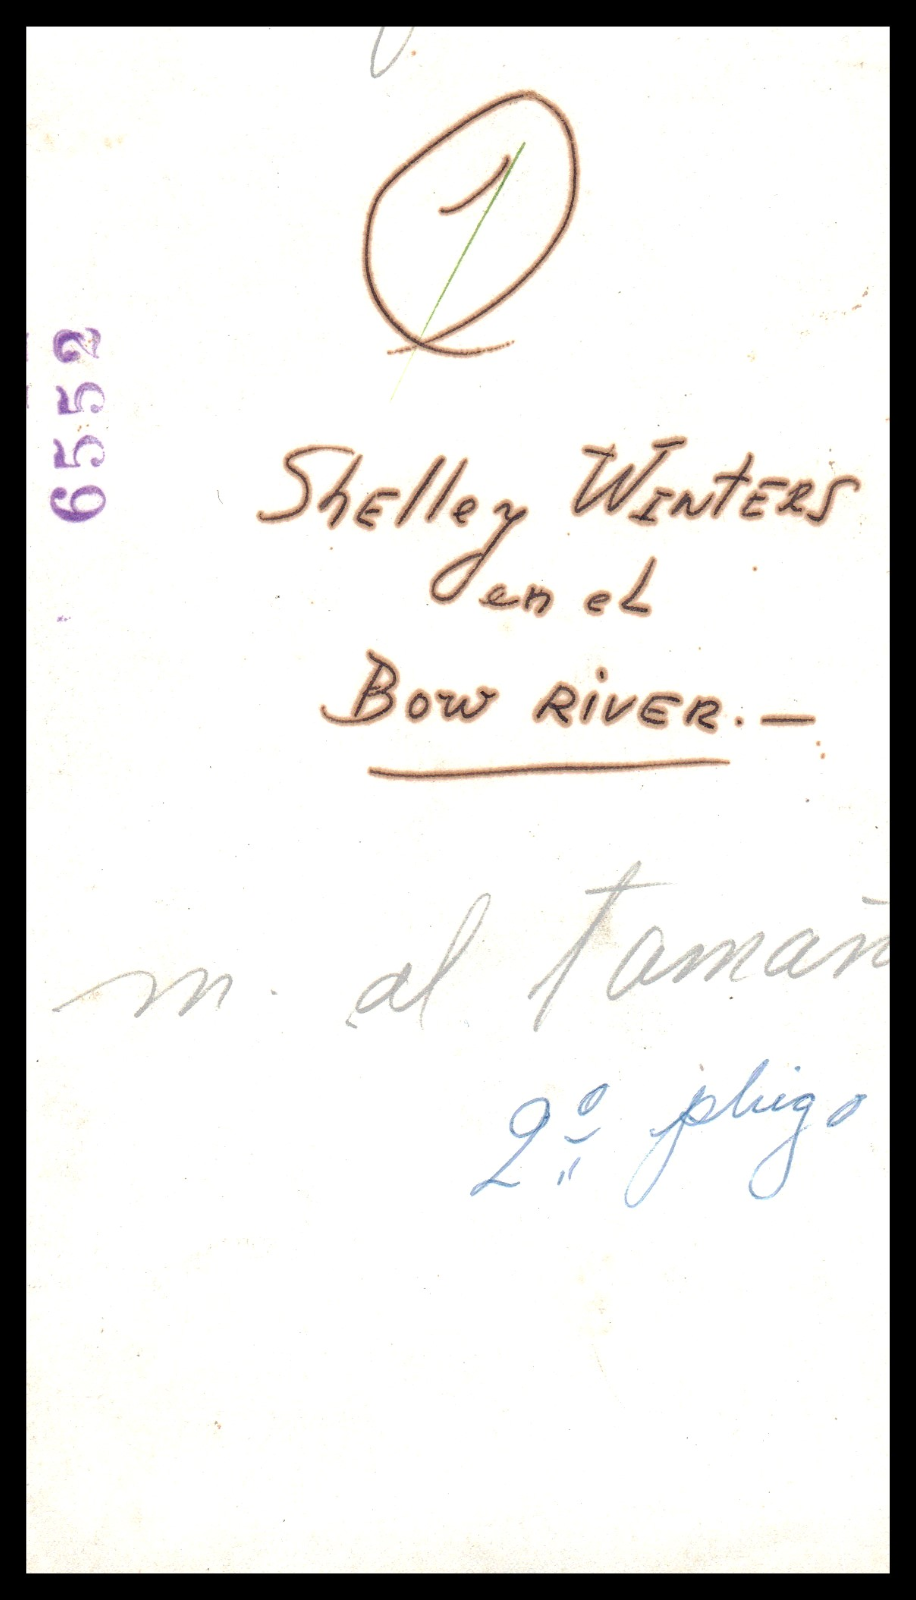 1
6552
Shelley Winters
en el
Bow River. —
m. al tamañ
2º pliego